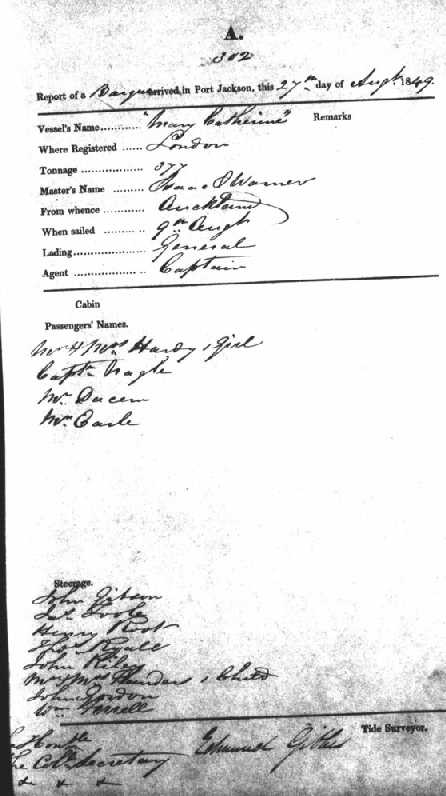 A.
302
Report of a Barque arrived, in Port Jackson, this 27th day of Augt. 1849.
Vessel's Name........... "Mary Catherine" Remarks
Where Registered ...... London
Tonnage ................... 377
Master's Name ......... Isaac
From whence ............ Auckland
When sailed .......... 9th Augt
Lading..................... General
Agent .................... Captain
Cabin
Passengers' Names.
Mr & Mrs Hardy & Girl
Captn Nagle
Mr
Mr Earle
Steerage.
John Gibson
Jas Toole
Henry
Ryall
John Riley
Mr & Mrs & Child
John Gordon
Wm
Tide Surveyor.
Honble
The Col Secretary Edmund
&. &. &.